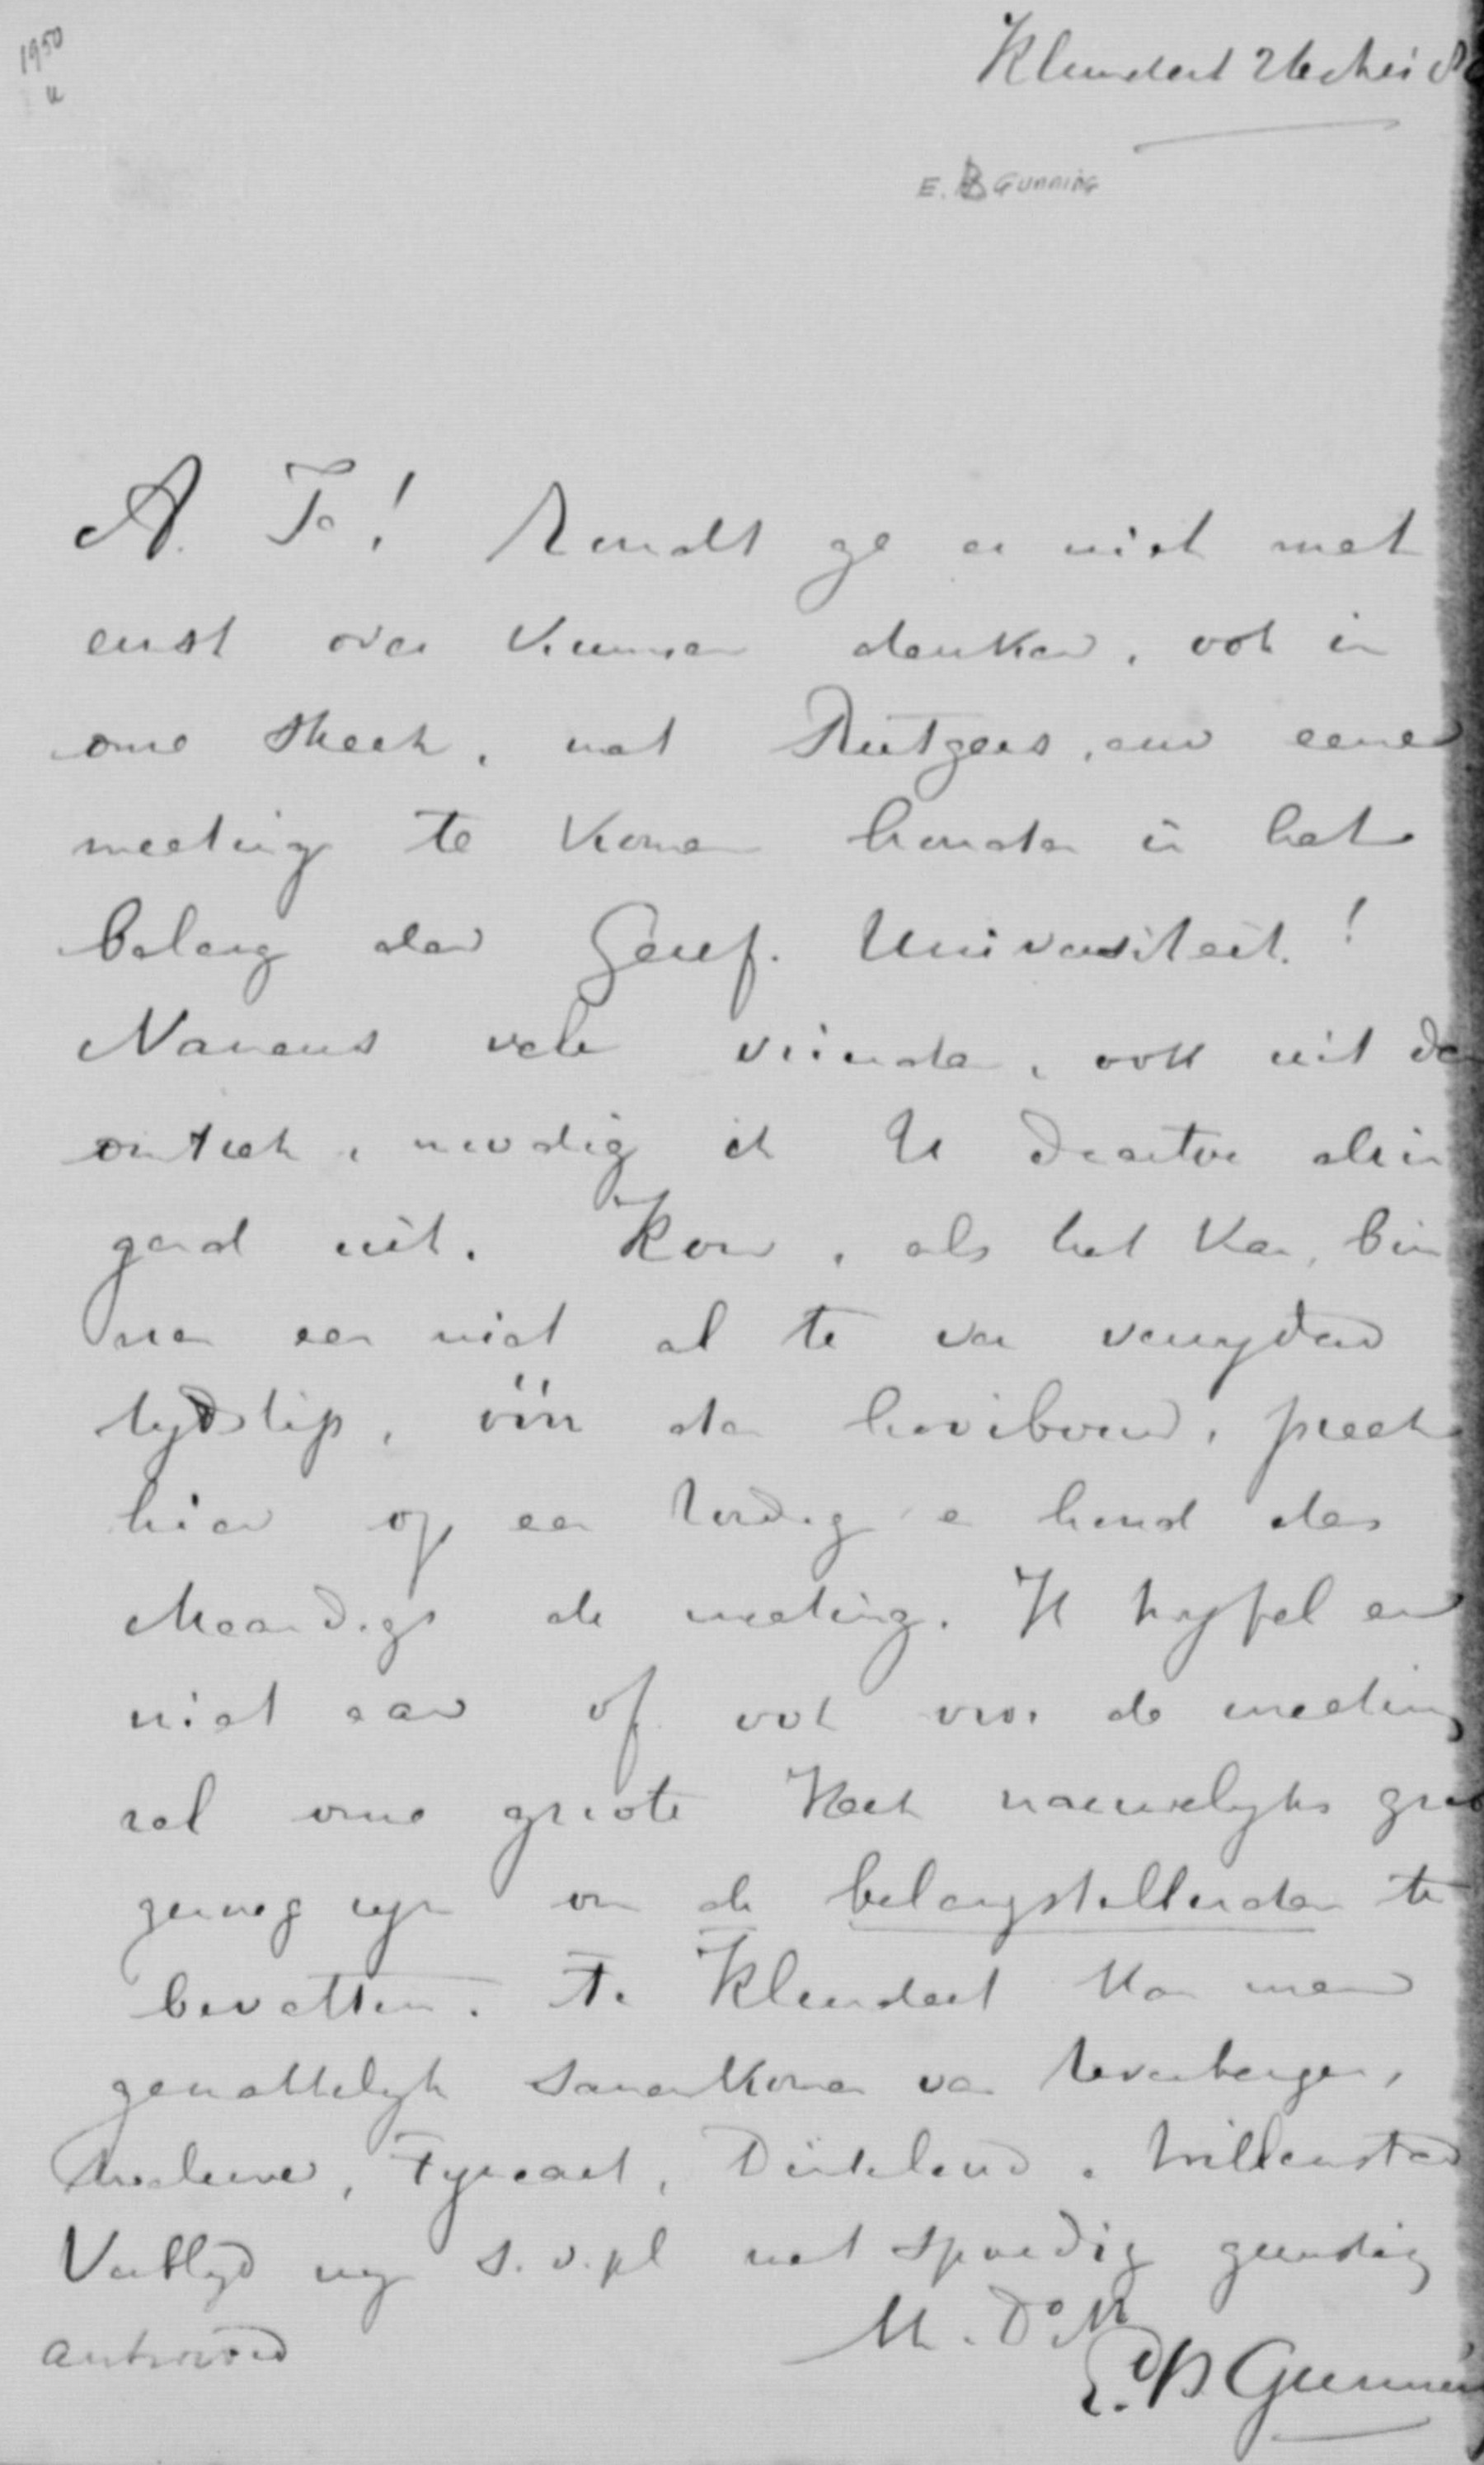 1950
Klundert 26 Mei 8
E. B Gunning
A. F! Zoudt ge er niet met
ernst over kunnen denken, ook in
onze streek, met Rutgers, eene
meeting te komen houden in het
belang der Geref. Universiteit!
Namens vele vrienden, ook uit den
omtrek, noodig ik U daartoe drin
gend uit. Kom, als het kan, bin
nen een niet al te ver verwyderd
tydstip, vóór den hooibouw, preek
hier op een Zondag en houd des
Maandags de meeting. Ik twyfel er
niet aan of ook voor de meeting
zal onze groote Kerk nauwelyks groot
genoeg zyn om de belangstellenden te
bevatten. Te Klundert kan men
gemakkelyk samenkomen van Zevenbergen,
Fynaart, Dinteloord, Willemstad
Verblyd my s.v.pl met spoedig gunstig
antwoord
E. B Gunning